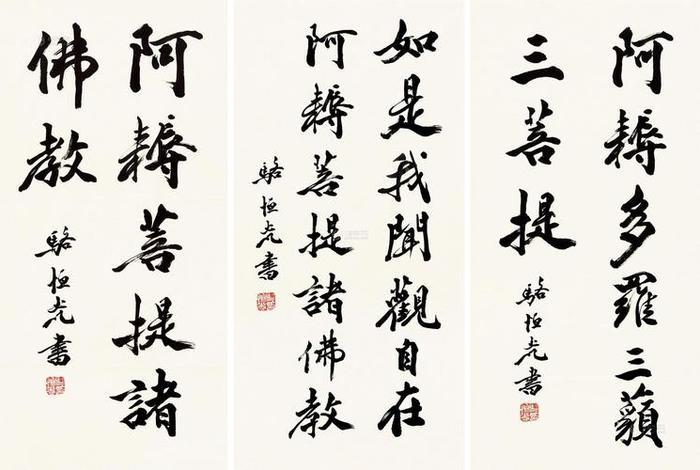 阿耨多羅三藐
三菩提
駱恒光書
如是我聞觀自在
阿耨菩提諸佛教
駱恒光書
阿耨菩提諸
佛教
駱恒光書